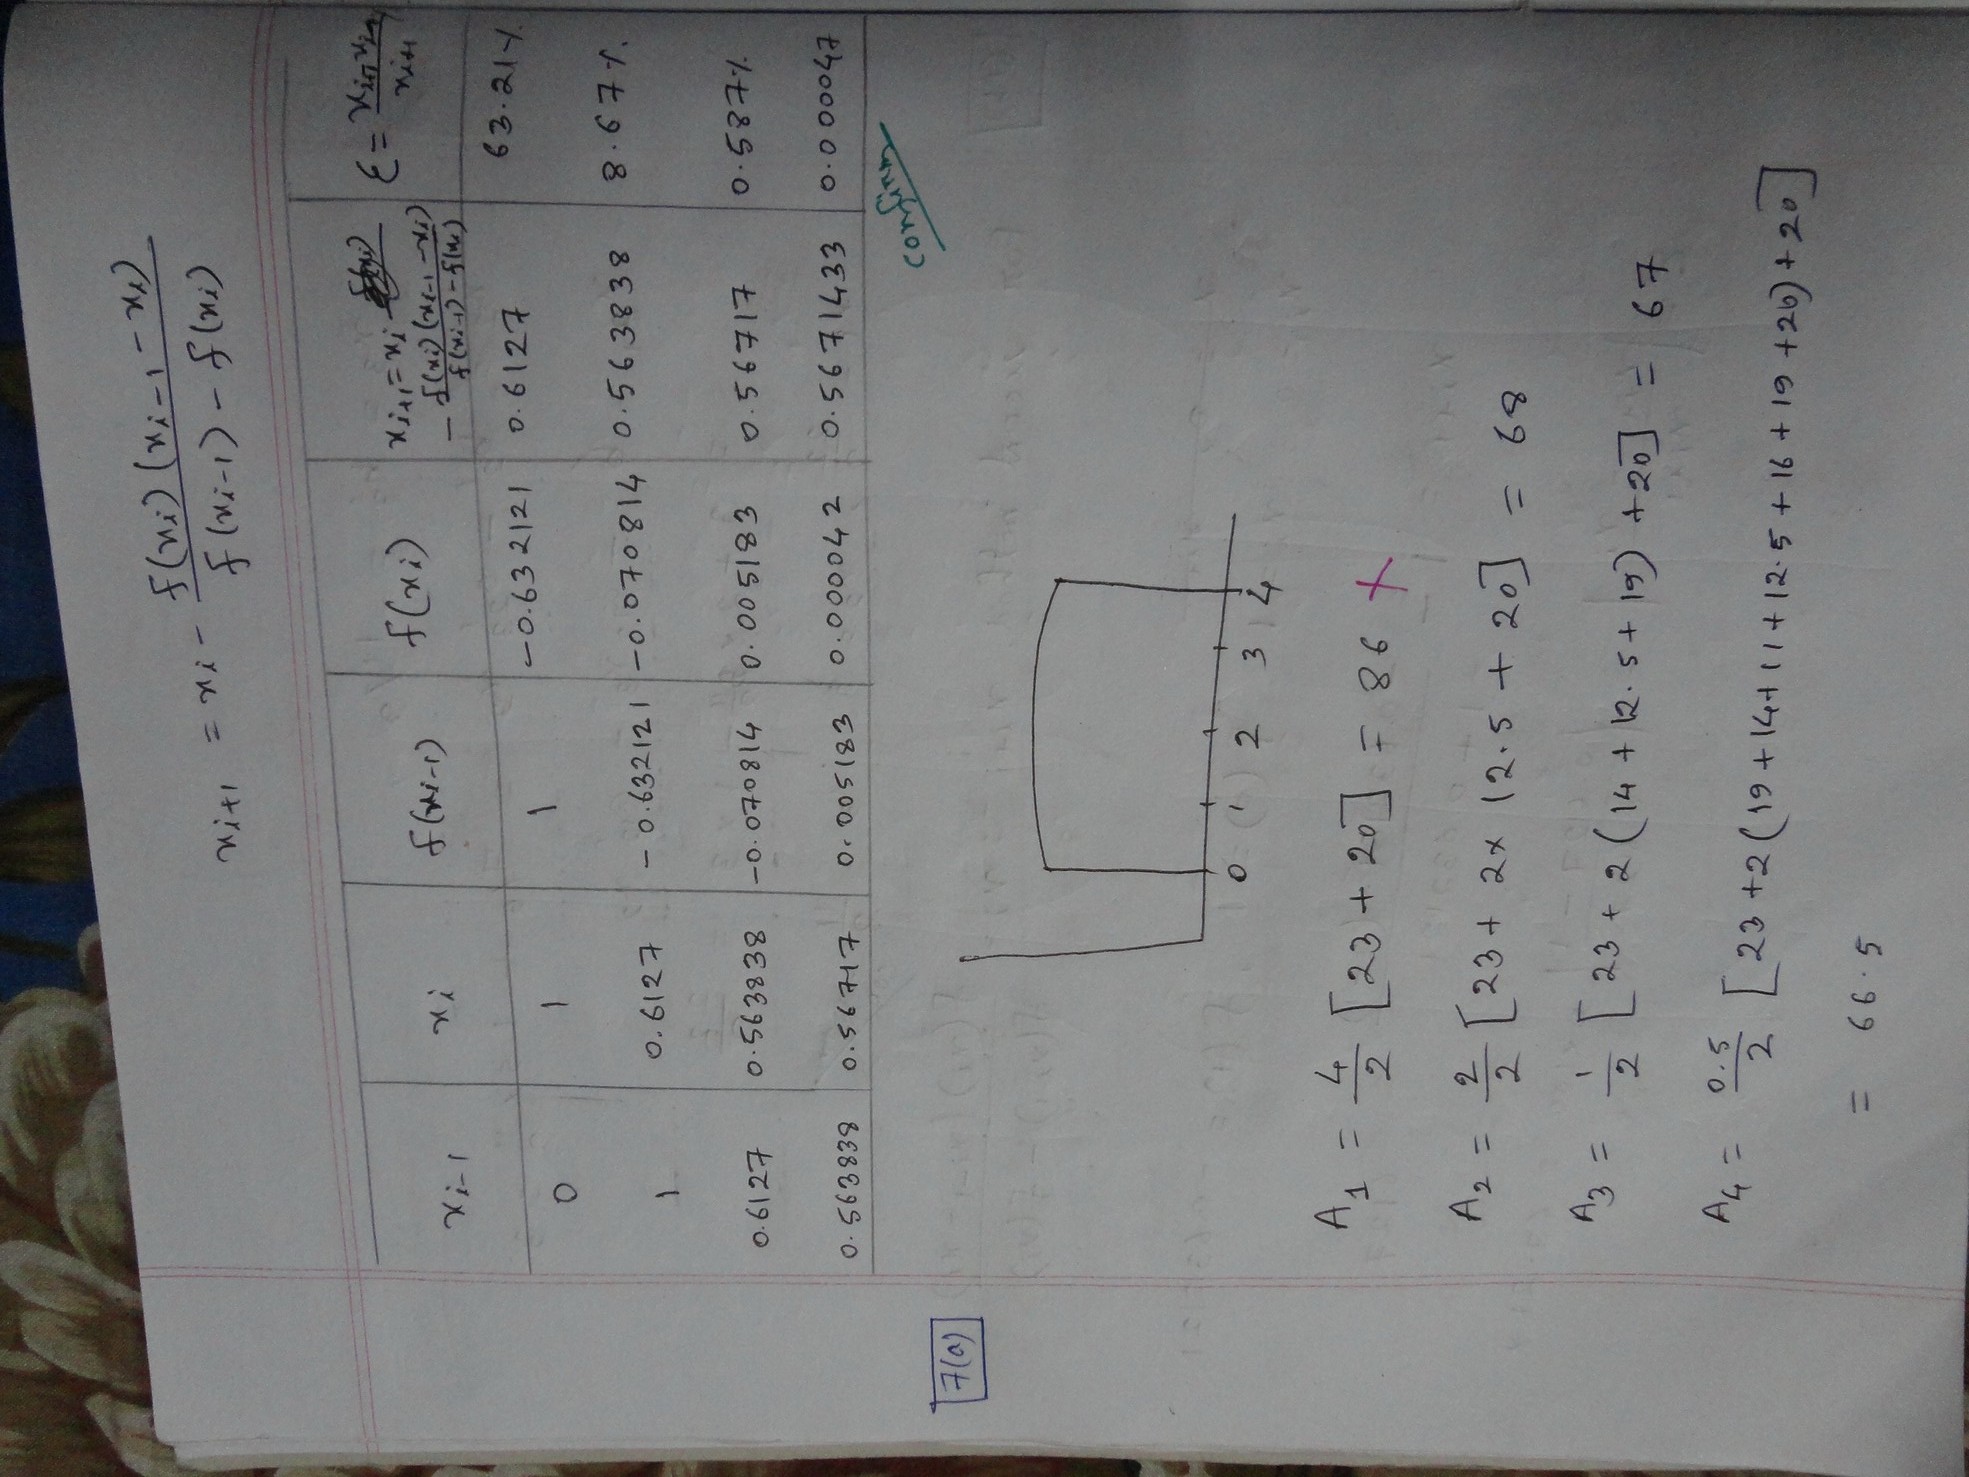 x_{i+1} = x_i - \frac{f(x_i)(x_{i-1} - x_i)}{f(x_{i-1}) - f(x_i)}
x_{i-1} x_i f(x_{i-1}) f(x_i) x_{i+1} = x_i - \frac{f(x_i)(x_{i-1} - x_i)}{f(x_{i-1}) - f(x_i)}
0 1 1 -0.632121 0.6127 63.21%
1 0.6127 -0.632121 -0.070814 0.563838 8.67%
0.6127 0.563838 -0.070814 0.005183 0.56717 0.587%
0.563838 0.56717 0.005183 0.000042 0.5671433 0.000047
confirm
7(a)
0 1 2 3 4
A_1 = \frac{4}{2} [23 + 20] = 86 ×
A_2 = \frac{2}{2} [23 + 2 × 12.5 + 20] = 68
A_3 = \frac{1}{2} [23 + 2 (14 + 12.5 + 19) + 20] = 67
A_4 = \frac{0.5}{2} [23 + 2 (19 + 14 + 11 + 12.5 + 16 + 19 + 20) + 20]
= 66.5